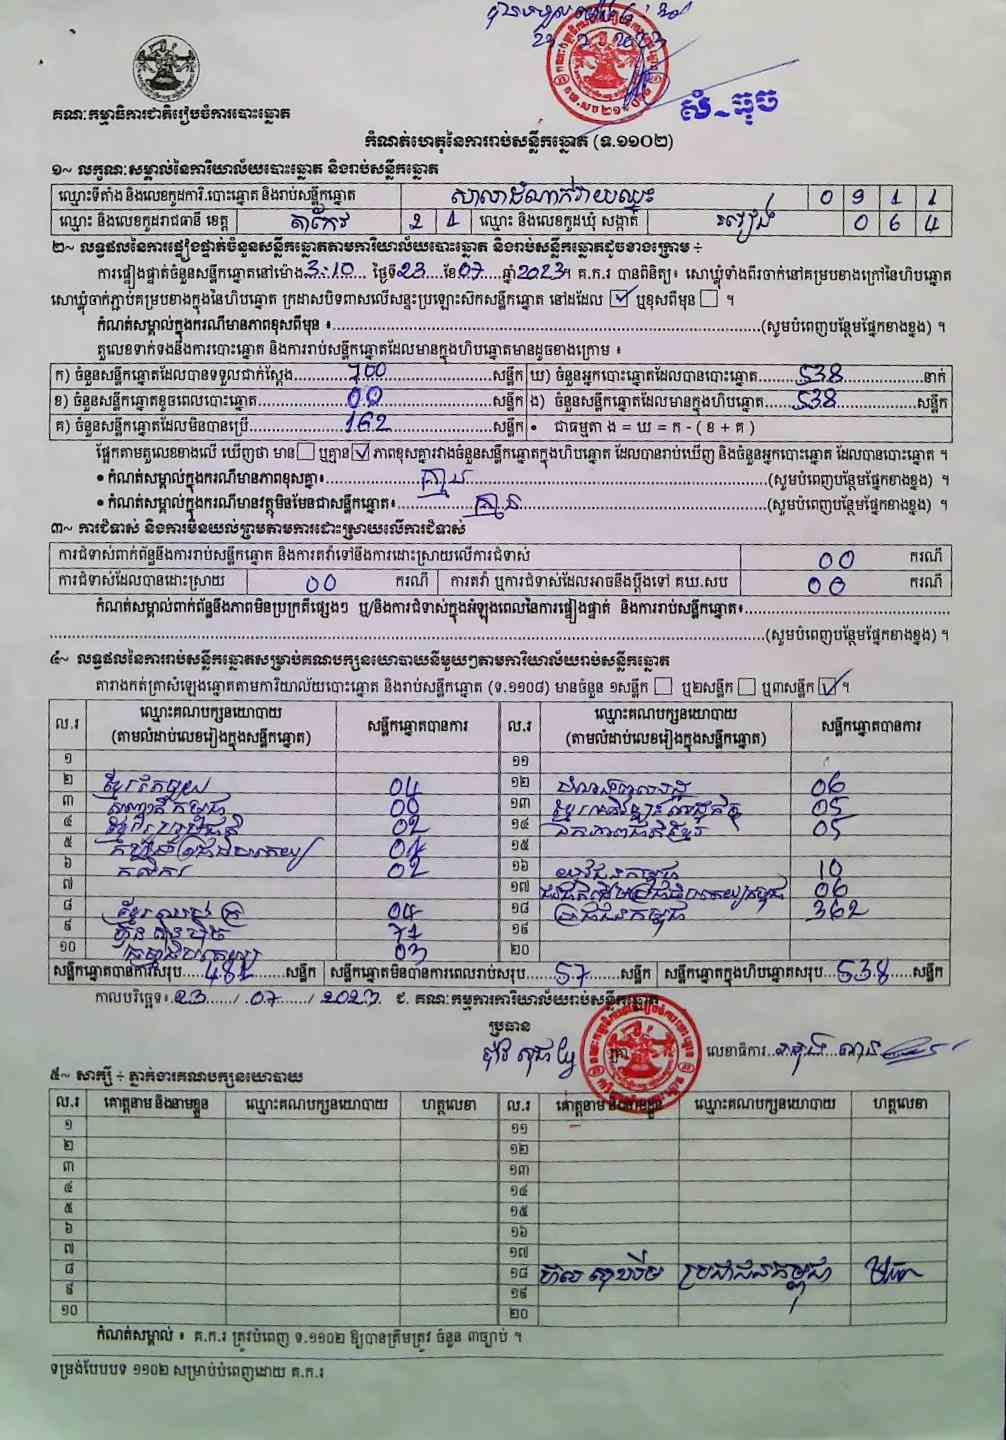 គណៈកម្មាធិការជាតិរៀបចំការបោះឆ្នោត
សំ ~ ធុច
កំណត់ហេតុនៃការរាប់សន្លឹកឆ្នោត (ទ.១១០២)
១~ លក្ខណៈសម្គាល់នៃការិយាល័យបោះឆ្នោត និងរាប់សន្លឹកឆ្នោត
ឈ្មោះទីតាំង និងលេខកូដការិ.បោះឆ្នោត និងរាប់សន្លឹកឆ្នោត សាលាដំណាក់ 0 9 1 1
ឈ្មោះ និងលេខកូដរាជធានី ខេត្ត តាកែវ 2 1 ឈ្មោះ និងលេខកូដឃុំ សង្កាត់ 0 6 4
២~ លទ្ធផលនៃការផ្ទៀងផ្ទាត់ចំនួនសន្លឹកឆ្នោតតាមការិយាល័យបោះឆ្នោត និងរាប់សន្លឹកឆ្នោតដូចខាងក្រោម ÷
ការផ្ទៀងផ្ទាត់ចំនួនសន្លឹកឆ្នោតនៅម៉ោង 3:10 ថ្ងៃទី 23 ខែ 07 ឆ្នាំ 2023។ គ.ក.រ បានពិនិត្យ៖ សោឃ្លុំទាំងពីរចាក់នៅគម្របខាងក្រៅនៃហិបឆ្នោត
សោឃ្លុំចាក់ភ្ជាប់គម្របខាងក្នុងនៃហិបឆ្នោត ក្រដាសបិទពាសលើសន្ទះប្រឡោះស៊កសន្លឹកឆ្នោត នៅដដែល ☑ ឬខុសពីមុន ☐ ។
កំណត់សម្គាល់ក្នុងករណីមានភាពខុសពីមុន ៖ (សូមបំពេញបន្ថែមផ្នែកខាងខ្នង) ។
តួលេខទាក់ទងនឹងការបោះឆ្នោត និងការរាប់សន្លឹកឆ្នោតដែលមានក្នុងហិបឆ្នោតមានដូចខាងក្រោម ៖
ក) ចំនួនសន្លឹកឆ្នោតដែលបានទទួលជាក់ស្តែង 700 សន្លឹក ឃ) ចំនួនអ្នកបោះឆ្នោតដែលបានបោះឆ្នោត 538 នាក់
ខ) ចំនួនសន្លឹកឆ្នោតខូចពេលបោះឆ្នោត 00 សន្លឹក ង) ចំនួនសន្លឹកឆ្នោតដែលមានក្នុងហិបឆ្នោត 538 សន្លឹក
គ) ចំនួនសន្លឹកឆ្នោតដែលមិនបានប្រើ 162 សន្លឹក • ជាធម្មតា ង = ឃ = ក - ( ខ + គ )
ផ្អែកតាមតួលេខខាងលើ ឃើញថា មាន ☐ ឬគ្មាន ☑ ភាពខុសគ្នារវាងចំនួនសន្លឹកឆ្នោតក្នុងហិបឆ្នោត ដែលបានរាប់ឃើញ និងចំនួនអ្នកបោះឆ្នោត ដែលបានបោះឆ្នោត ។
• កំណត់សម្គាល់ក្នុងករណីមានភាពខុសគ្នា៖ គ្មាន (សូមបំពេញបន្ថែមផ្នែកខាងខ្នង) ។
• កំណត់សម្គាល់ក្នុងករណីមានវត្ថុមិនមែនជាសន្លឹកឆ្នោត៖ គ្មាន (សូមបំពេញបន្ថែមផ្នែកខាងខ្នង) ។
៣~ ការជំទាស់ និងការមិនយល់ព្រមតាមការដោះស្រាយលើការជំទាស់
ការជំទាស់ពាក់ព័ន្ធនឹងការរាប់សន្លឹកឆ្នោត និងការតវ៉ាទៅនឹងការដោះស្រាយលើការជំទាស់ 00 ករណី
ការជំទាស់ដែលបានដោះស្រាយ 00 ករណី ការតវ៉ា ឬការជំទាស់ដែលអាចនឹងប្តឹងទៅ គឃ.សប 00 ករណី
កំណត់សម្គាល់ពាក់ព័ន្ធនឹងភាពមិនប្រក្រតីផ្សេងៗ ឬ/និងការជំទាស់ក្នុងអំឡុងពេលនៃការផ្ទៀងផ្ទាត់ និងការរាប់សន្លឹកឆ្នោត៖
(សូមបំពេញបន្ថែមផ្នែកខាងខ្នង) ។
៤~ លទ្ធផលនៃការរាប់សន្លឹកឆ្នោតសម្រាប់គណបក្សនយោបាយនីមួយៗតាមការិយាល័យរាប់សន្លឹកឆ្នោត
តារាងកត់ត្រាសំឡេងឆ្នោតតាមការិយាល័យបោះឆ្នោត និងរាប់សន្លឹកឆ្នោត (ទ.១១០៨) មានចំនួន ១សន្លឹក ☐ ឬ២សន្លឹក ☐ ឬ៣សន្លឹក ☑ ។
ល.រ ឈ្មោះគណបក្សនយោបាយ (តាមលំដាប់លេខរៀងក្នុងសន្លឹកឆ្នោត) សន្លឹកឆ្នោតបានការ ល.រ ឈ្មោះគណបក្សនយោបាយ (តាមលំដាប់លេខរៀងក្នុងសន្លឹកឆ្នោត) សន្លឹកឆ្នោតបានការ
១ ១១
២ 04 ១២ 06
៣ 00 ១៣ 05
៤ 02 ១៤ ឯកភាពជាតិខ្មែរ 05
៥ ១៥
៦ កសិករ 02 ១៦ យុវជនកម្ពុជា 10
៧ ១៧ 06
៨ 04 ១៨ ប្រជាជនកម្ពុជា 362
៩ ហ៊្វុនស៊ិនប៉ិច 71 ១៩
១០ 03 ២០
សន្លឹកឆ្នោតបានការសរុប 481 សន្លឹក សន្លឹកឆ្នោតមិនបានការពេលរាប់សរុប 57 សន្លឹក សន្លឹកឆ្នោតក្នុងហិបឆ្នោតសរុប 538 សន្លឹក
កាលបរិច្ឆេទ៖ 23 / 07 / 2023 ជ. គណៈកម្មការការិយាល័យរាប់សន្លឹកឆ្នោត
ប្រធាន
លេខាធិការ
៥~ សាក្សី ÷ ភ្នាក់ងារគណបក្សនយោបាយ
ល.រ គោត្តនាម និងនាមខ្លួន ឈ្មោះគណបក្សនយោបាយ ហត្ថលេខា ល.រ គោត្តនាម និងនាមខ្លួន ឈ្មោះគណបក្សនយោបាយ ហត្ថលេខា
១ ១១
២ ១២
៣ ១៣
៤ ១៤
៥ ១៥
៦ ១៦
៧ ១៧
៨ ១៨ ប្រជាជនកម្ពុជា
៩ ១៩
១០ ២០
កំណត់សម្គាល់ ៖ គ.ក.រ ត្រូវបំពេញ ទ.១១០២ ឱ្យបានត្រឹមត្រូវ ចំនួន ៣ច្បាប់ ។
ទម្រង់បែបបទ ១១០២ សម្រាប់បំពេញដោយ គ.ក.រ